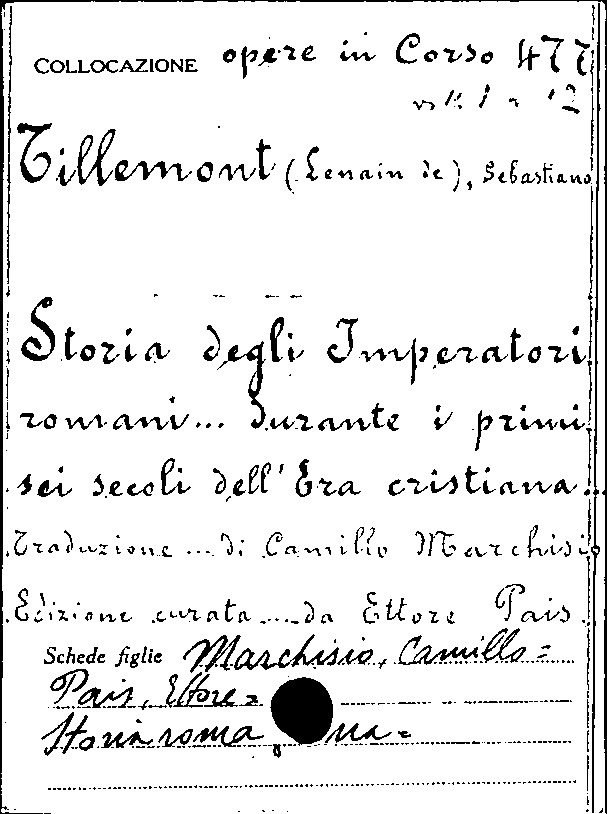 COLLOCAZIONE opere in Corso 477
vol. 1 a 12
Tillemont (Lenain de), Sebastiano
Storia degli Imperatori
romani... durante i primi
sei secoli dell'Era cristiana...
Traduzione ... di Camillo Marchisio
Edizione curata ... da Ettore Pais.
Schede figlie Marchisio, Camillo =
Pais, Ettore =
Storia romana =